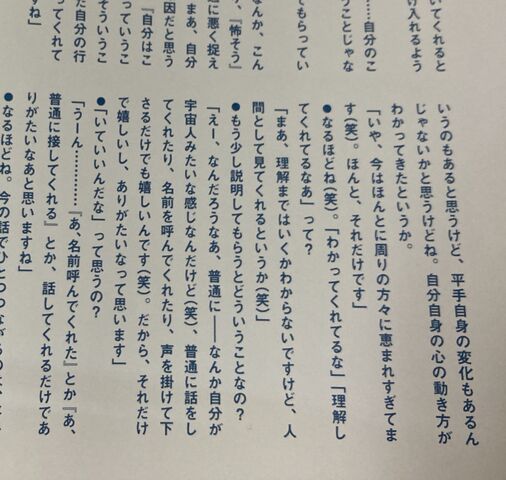 いてくれると
け入れるよう
……自分のこ
うことじゃな
てもらってい
なんか、こん
、『怖そう』
に悪く捉え
まあ、自分
因だと思う
『自分はこ
っていうこ
そういうこ
た自分の行
ってくれて
すね」
いうのもあると思うけど、平手自身の変化もあるん
じゃないかと思うけどね。自分自身の心の動き方が
わかってきたというか。
「いや、今はほんとに周りの方々に恵まれすぎてま
す(笑)。ほんと、それだけです」
●なるほどね(笑)。「わかってくれてるな」「理解し
てくれてるなあ」って？
「まあ、理解まではいくかわからないですけど、人
間として見てくれるというか(笑)」
●もう少し説明してもらうとどういうことなの？
「えー、なんだろうなあ、普通に——なんか自分が
宇宙人みたいな感じなんだけど(笑)、普通に話をし
てくれたり、名前を呼んでくれたり、声を掛けて下
さるだけでも嬉しいんです(笑)。だから、それだけ
で嬉しいし、ありがたいなって思います」
●「いていいんだな」って思うの？
「うーん…………『あ、名前呼んでくれた』とか『あ、
普通に接してくれる』とか、話してくれるだけであ
りがたいなあと思いますね」
●なるほどね。今の話でひとつつながるのは、